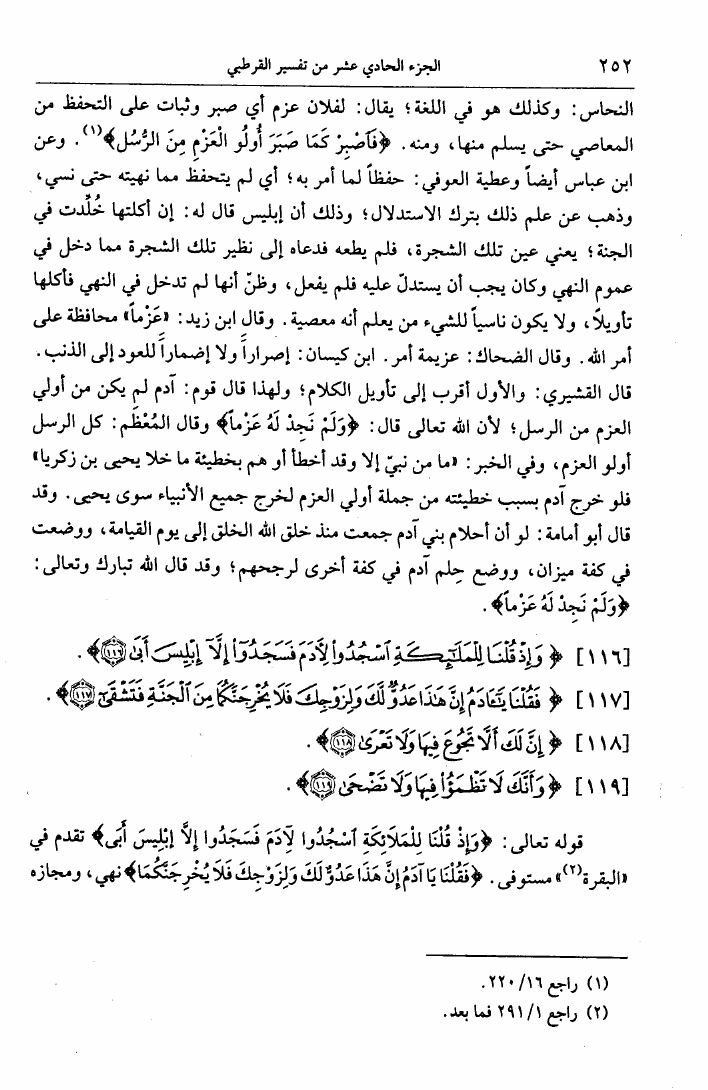 ٢٥٢ الجزء الحادي عشر من تفسير القرطبي
النحاس: وكذلك هو في اللغة؛ يقال: لفلان عزم أي صبر وثبات على التحفظ من
المعاصي حتى يسلم منها، ومنه. ﴿فَٱصْبِرْ كَمَا صَبَرَ أُولُو الْعَزْمِ مِنَ الرُّسُلِ﴾(١). وعن
ابن عباس أيضاً وعطية العوفي: حفظاً لما أمر به؛ أي لم يتحفظ مما نهيته حتى نسي،
وذهب عن علم ذلك بترك الاستدلال؛ وذلك أن إبليس قال له: إن أكلتها خُلِّدت في
الجنة؛ يعني عين تلك الشجرة، فلم يطعه فدعاه إلى نظير تلك الشجرة مما دخل في
عموم النهي وكان يجب أن يستدلّ عليه فلم يفعل، وظنّ أنها لم تدخل في النهي فأكلها
تأويلاً، ولا يكون ناسياً للشيء من يعلم أنه معصية. وقال ابن زيد: «عَزْماً» محافظة على
أمر الله. وقال الضحاك: عزيمة أمر. ابن كيسان: إصراراً ولا إضماراً للعود إلى الذنب.
قال القشيري: والأول أقرب إلى تأويل الكلام؛ ولهذا قال قوم: آدم لم يكن من أولي
العزم من الرسل؛ لأن الله تعالى قال: ﴿وَلَمْ نَجِدْ لَهُ عَزْماً﴾ وقال المُعْظَم: كل الرسل
أولو العزم، وفي الخبر: «ما من نبيّ إلا وقد أخطأ أو هم بخطيئة ما خلا يحيى بن زكريا»
فلو خرج آدم بسبب خطيئته من جملة أولي العزم لخرج جميع الأنبياء سوى يحيى. وقد
قال أبو أمامة: لو أن أحلام بني آدم جمعت منذ خلق الله الخلق إلى يوم القيامة، ووضعت
في كفة ميزان، ووضع حِلم آدم في كفة أخرى لرجحهم؛ وقد قال الله تبارك وتعالى:
﴿وَلَمْ نَجِدْ لَهُ عَزْماً﴾.
[١١٦] ﴿ وَإِذْ قُلْنَا لِلْمَلَٰٓئِكَةِ ٱسْجُدُوا۟ لِأَدَمَ فَسَجَدُوٓا۟ إِلَّآ إِبْلِيسَ أَبَىٰ ١١٦﴾.
[١١٧] ﴿ فَقُلْنَا يَٰٓـَٔادَمُ إِنَّ هَٰذَا عَدُوٌّ لَّكَ وَلِزَوْجِكَ فَلَا يُخْرِجَنَّكُمَا مِنَ ٱلْجَنَّةِ فَتَشْقَىٰٓ ١١٧﴾.
[١١٨] ﴿ إِنَّ لَكَ أَلَّا تَجُوعَ فِيهَا وَلَا تَعْرَىٰ ١١٨﴾.
[١١٩] ﴿ وَأَنَّكَ لَا تَظْمَؤُا۟ فِيهَا وَلَا تَضْحَىٰ ١١٩﴾.
قوله تعالى: ﴿وَإِذْ قُلْنَا لِلْمَلَائِكَةِ ٱسْجُدُوا لِآدَمَ فَسَجَدُوا إِلَّا إِبْلِيسَ أَبَى﴾ تقدم في
«البقرة(٢)» مستوفى. ﴿فَقُلْنَا يَا آدَمُ إِنَّ هَذَا عَدُوٌّ لَكَ وَلِزَوْجِكَ فَلَا يُخْرِجَنَّكُمَا﴾ نهي، ومجازه
(١) راجع ٢٢٠/١٦.
(٢) راجع ٢٩١/١ فما بعد.